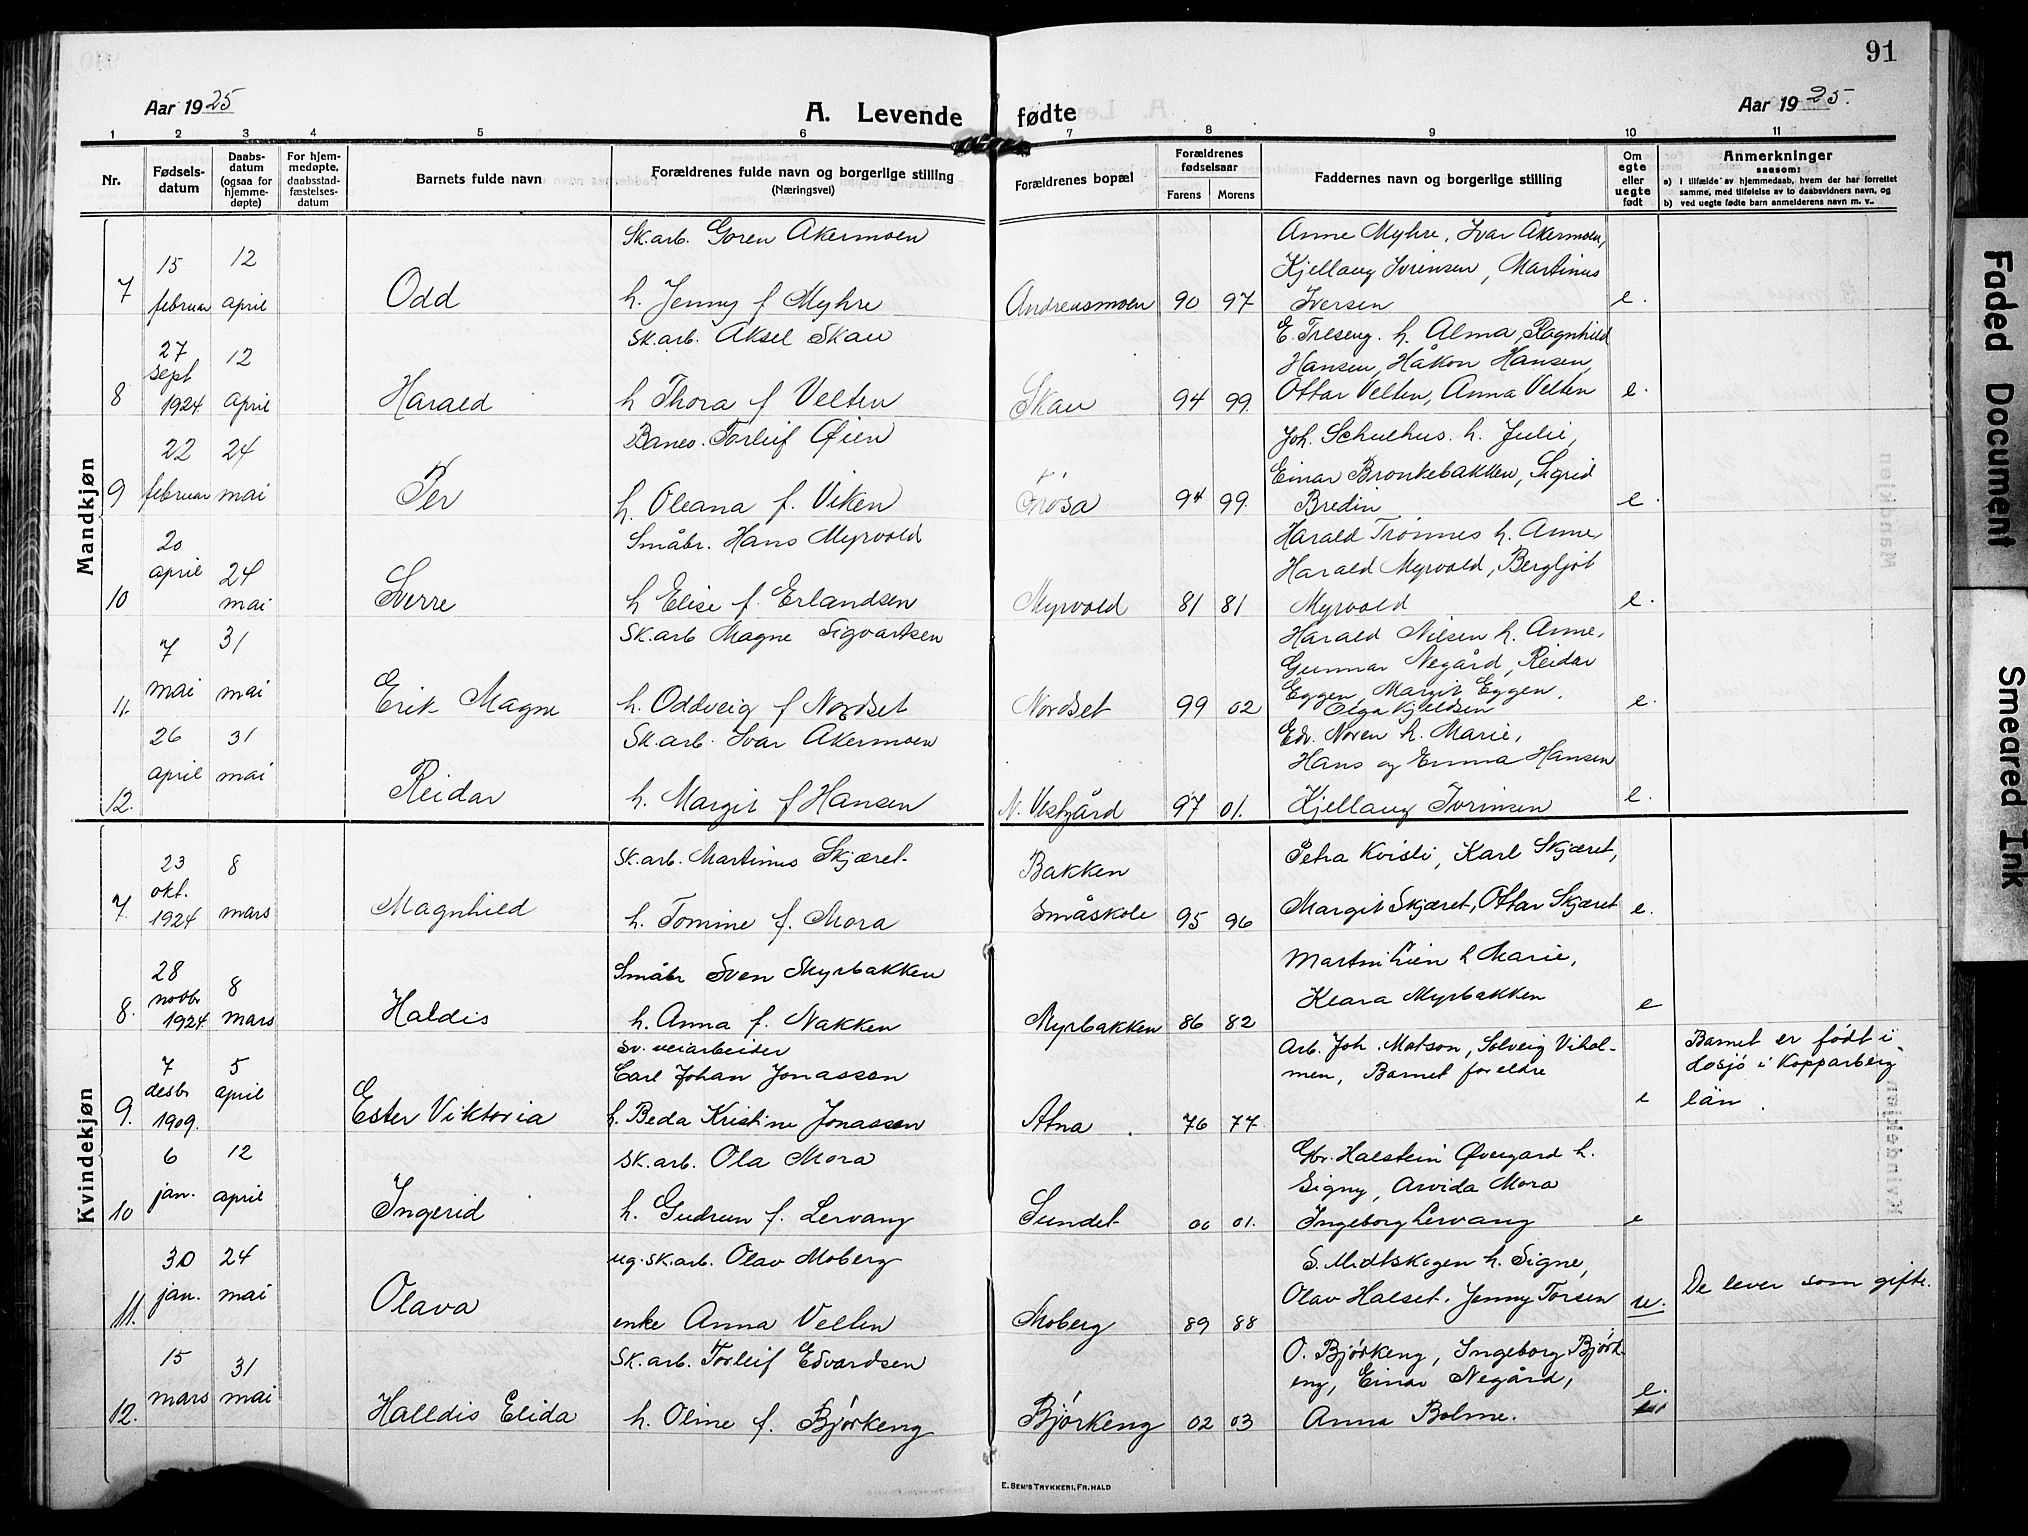 91
Aar 1925 A. Levende fødte Aar 1925.
1 2 3 4 5 6 7 8 9 10 11
Nr.
Fødsels-
datum
Daabs-
datum
(ogsaa for
hjemme-
døpte)
For hjem-
medøpte,
daabsstad-
fæstelses-
datum
Barnets fulde navn
Forældrenes fulde navn og borgerlige stilling
(Næringsvei)
Forældrenes bopæl
Forældrenes
fødselsaar
Farens Morens
Faddernes navn og borgerlige stilling
Om
egte
eller
uegte
født
Anmerkninger
saasom:
a) I tilfælde av hjemmedaab, hvem der har forrettet
samme, med tilføielse av to daabsvidners navn, og
b) ved uegte fødte barn anmelderens navn m. v..
Mandkjøn
7
15
februar
12
april
Odd
Sk.arb. Goren Akermoen
h. Jenny f Myhre
Andreasmoen 90 97
Anne Myhre, Ivar Åkermoen,
Kjellaug Ivrinsen, Martinus
Iversen
e.
8
27
sept
1924
12
april
Harald
Sk.arb. Aksel Skau
h Thora f Velten
Skau 94 99.
E. Treseng. h. Alma, Ragnhild
Hansen, Håkon Hansen,
Ottar Velten, Anna Velten
e.
9
22
februar
24
mai
Per
Banes. Torleif Øien
h. Oleana f. Viken
Trøsa 94 99.
Joh. Schulhus. h. Julie,
Einar Bronkebakken, Sigrid
Bredin
e.
10
20
april
24
mai
Sverre
Småbr. Hans Myrvold
h Elise f. Erlandsen
Myrvold 81 81
Harald Trønnes h. Anne,
Harald Myrvold, Bergljot
Myrvold
e.
11.
7
mai
31
mai
Erik Magne
Sk.arb Magne Sigvartsen
h. Oddveig f Nordset
Nordset 99 02
Harald Nilsen h. Anne,
Gunnar Negård, Reidar
Eggen, Margit Eggen,
Olga Kjeldsen
e.
12.
26
april
31
mai
Reidar
Sk.arb. Ivar Åkermoen
h. Margit f Hansen
N. Vestgård 97 01.
Edv. Noren h. Marie,
Hans og Emma Hansen
Kjellaug Ivrinsen
e.
Kvindekjøn
7.
23
okt.
1924
8
mars
Magnhild
Sk.arb. Martinus Skjæret
h. Tomine f. Mora
Bakken
Småskole 95 96
Petra Kvisli, Karl Skjæret,
Margit Skjæret, Ottar Skjæret
e.
8.
28
novbr
1924
8
mars
Haldis
Småbr Sven Myrbakken
h. Anna f. Nakken
Myrbakken 86 82
Martin Lien h Marie,
Klara Myrbakken
e
9.
7
desbr
1909.
5
april
Ester Viktoria
Sv. veiarbeider
Carl Johan Jonassen
h. Beda Kristine Jonassen
Atna. 76 77.
Arb. Joh. Matson, Solveig Vihol-
men, Barnet foreldre
e
Barnet er født i
Losjö i Kopparberg
län.
10
6
jan.
12
april
Ingerid
Sk.arb. Ola Mora
h. Gudrun f. Lervang
Sundet 00 01.
Gbr. Halstein Øvergard h.
Signy, Arvida Mora
Ingeborg Lervang
e
11.
30
jan.
24
mai
Olava
ug. sk.arb. Olav Moberg
enke Anna Velten
Moberg 89 88
S. Midtskogen h. Signe,
Olav Halset. Jenny Torsen
u.
De lever som gifte.
12.
15
mars
31
mai
Halldis Elida
Sk.arb. Torleif Edvardsen
h. Oline f. Bjørkeng
Bjørkeng 02 03
O. Bjørkeng, Ingeborg Bjørk-
eng, Einar Negård,
Anna Bolme.
e.
E. SEM'S TRYKKERI, FR.HALD
Faded Document
Smeared Ink